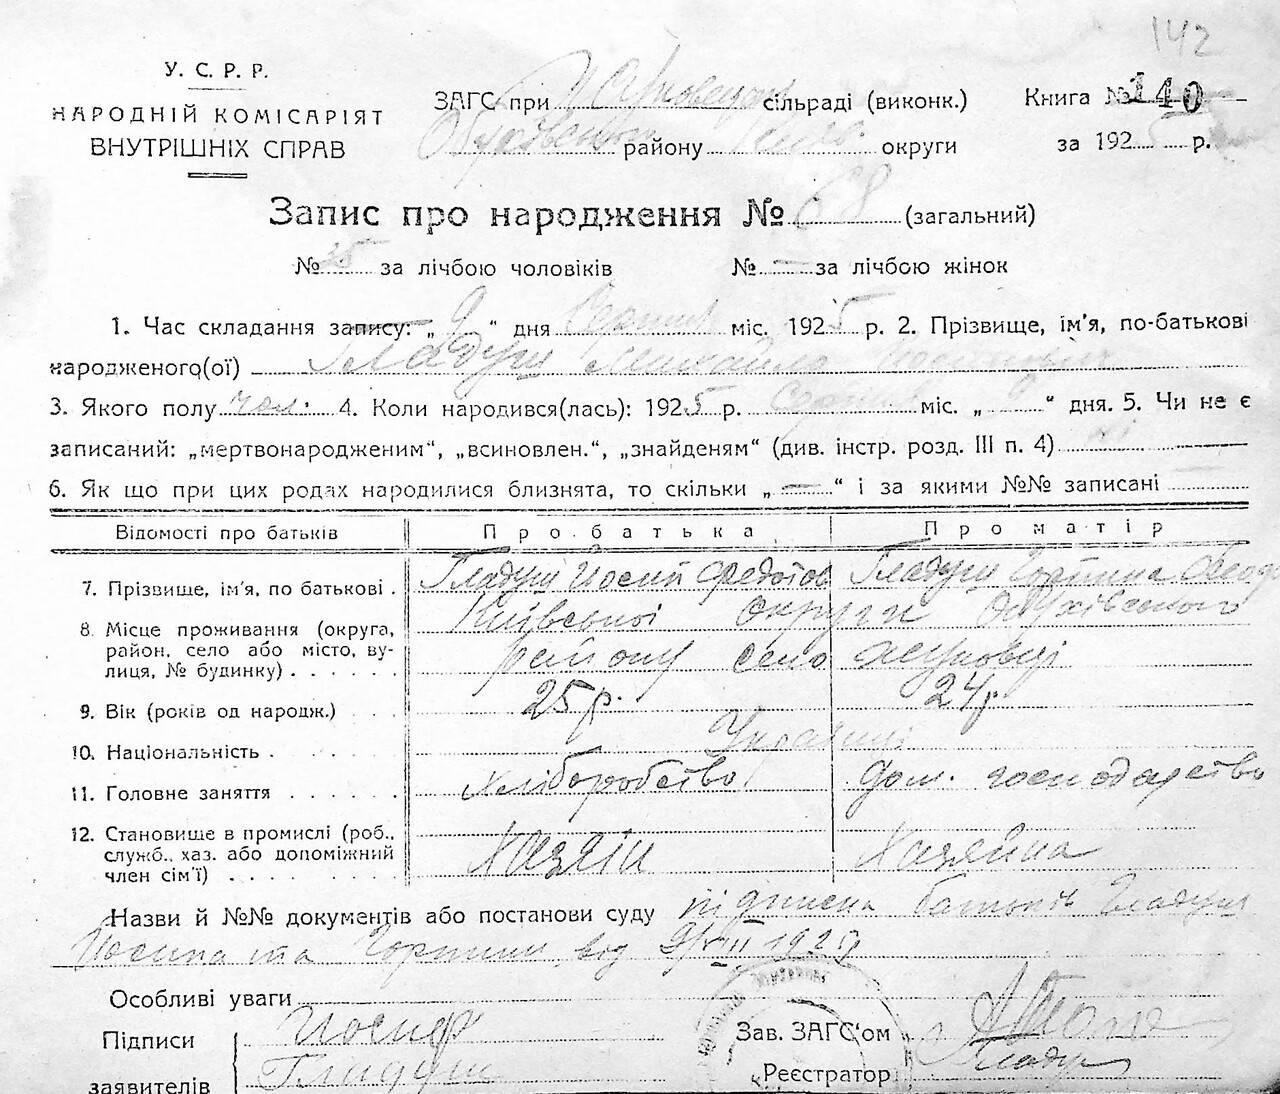 142
У. С. Р. Р.
НАРОДНІЙ КОМІСАРІЯТ
ВНУТРІШНІХ СПРАВ
ЗАГС при сільраді (виконк.)
району округи
Книга № 140
за 1925 р.
Запис про народження № 68 (загальний)
№ 35 за лічбою чоловіків № — за лічбою жінок
1. Час складання запису: „ 9 “ дня Серпня міс. 1925 р. 2. Прізвище, ім'я, по-батькові
народженого(ої) Гладуш Михайло
3. Якого полу чол. 4. Коли народився(лась): 1925 р. серпня міс. „ 9 “ дня. 5. Чи не є
записаний: „мертвонародженим“, „всиновлен.“, „знайденям“ (див. інстр. розд. III п. 4) ні
6. Як що при цих родах народилися близнята, то скільки „ — “ і за якими №№ записані
Відомості про батьків Про батька Про матір
7. Прізвище, ім'я, по батькові . Гладуш Йосип Федотов Гладуш Горпина
8. Місце проживання (округа, район, село або місто, вулиця, № будинку) . . . . . . Київської округи Обухівського
району село
9. Вік (років од народж.) . . . 25 р. 24 р.
10. Національність . Українці
11. Головне заняття . . . . . . Хліборобство дом. господарство
12. Становище в промислі (роб., служб., хаз. або допоміжний член сім'ї) . . . . . . . . Хазяїн Хазяйка
Назви й №№ документів або постанови суду підписка батьків Гладуш
Йосипа та Горпини від 9/VIII 1925 р
Особливі уваги
Підписи заявителів Йосиф
Гладуш
Зав. ЗАГС'ом
Реєстратор